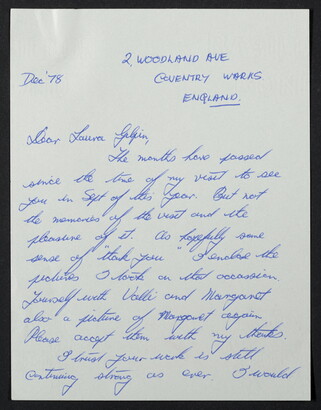 2, WOODLAND AVE
COVENTRY WARKS
ENGLAND.
Dec '78
Dear Laura Gilpin,
The months have passed
since the time of my visit to see
you in Sept of this Year. But not
the memories of the visit and the
pleasure of it. As hopefully some
sense of "thank you" I enclose the
pictures I took on that occassion.
Yourself with Valli and Margaret
also a picture of Margaret again
Please accept them with my thanks.
I trust your work is still
continuing strong as ever. I would